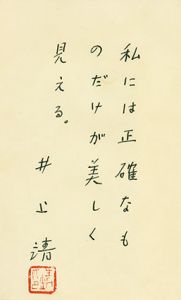 私には正確なも
のだけが美しく
見える。
井上
清